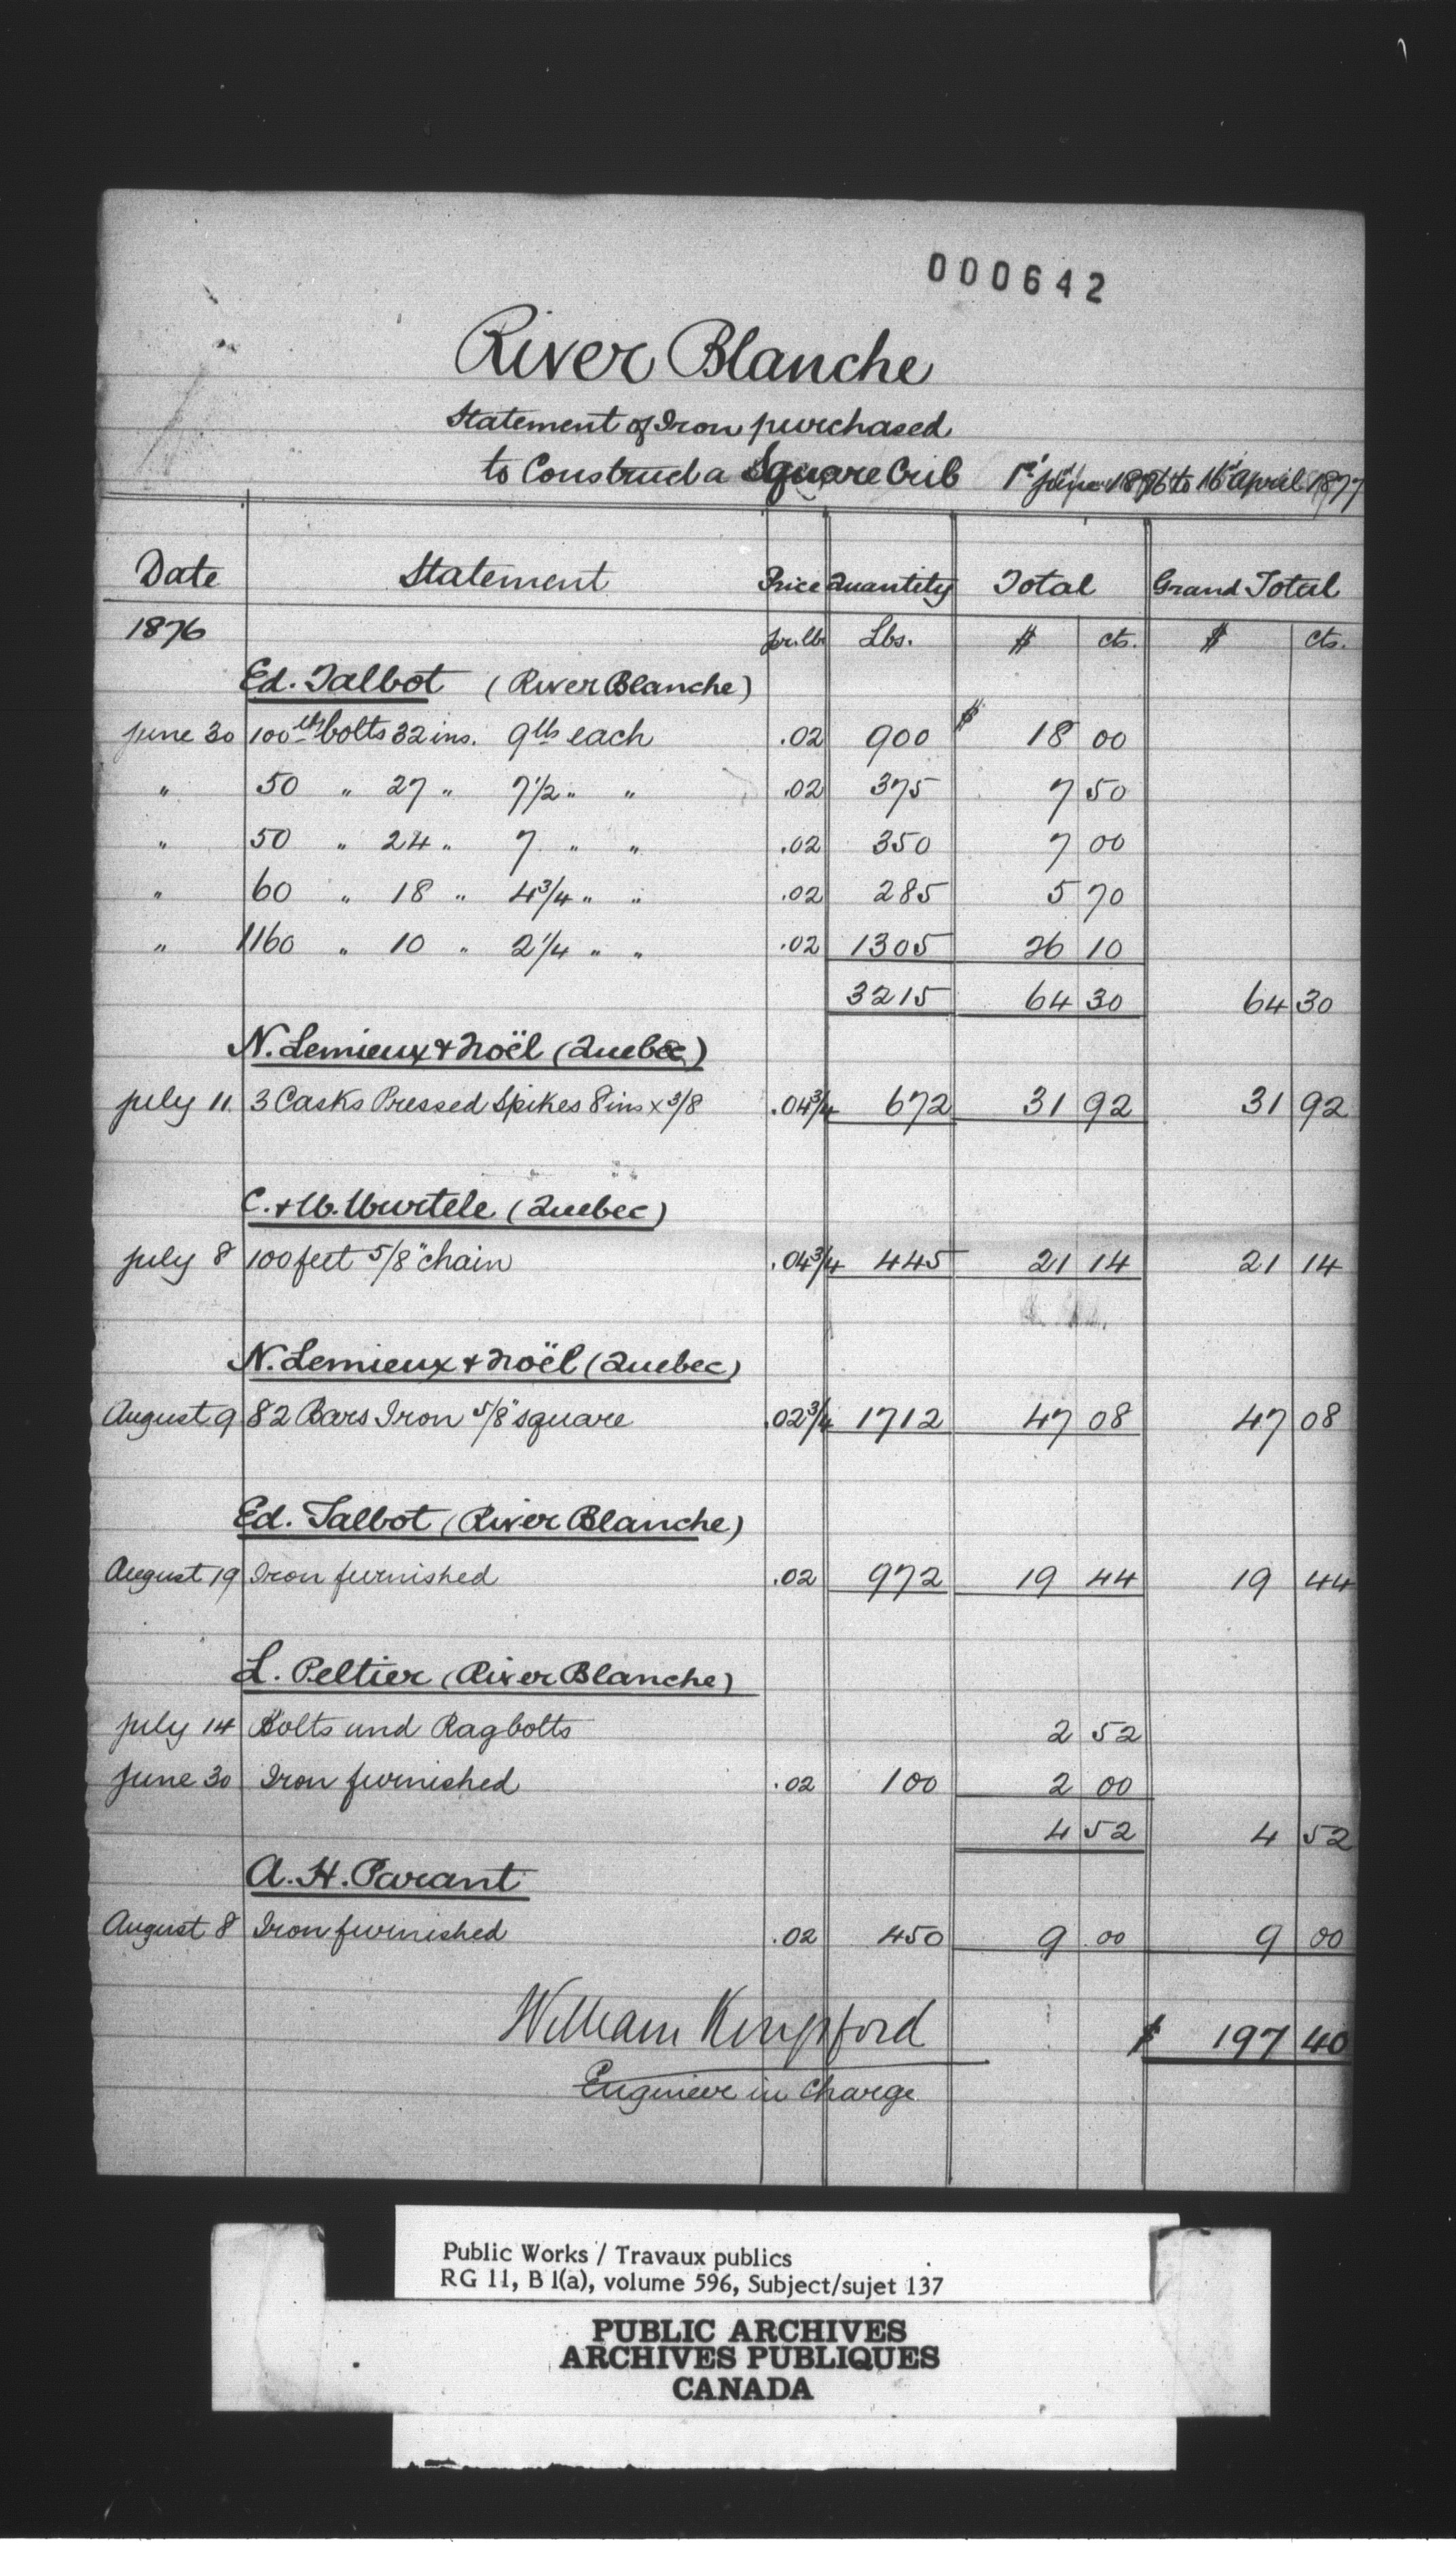 000642
River Blanche
Statement of Iron purchased
to Construct a Square Crib 1st June 1876 to 16 April 1877
Date Statement Price Quantity Total Grand Total
1876 pr. lb Lbs. $ cts. $ cts.
Ed. Talbot (River Blanche)
June 30 100 bolts 32 ins. 9 lbs each .02 900 $ 18 00
" 50 " 27 " 7 1/2 " " .02 375 7 50
" 50 " 24 " 7 " " .02 350 7 00
" 60 " 18 " 4 3/4 " " .02 285 5 70
" 1160 " 10 " 2 1/4 " " .02 1305 26 10
3215 64 30 64 30
N. Lemieux & Noël (Quebec)
July 11. 3 Casks Pressed Spikes 8 ins x 3/8 .04 3/4 672 31 92 31 92
C. & W. Wurtele (Quebec)
July 8 100 feet 5/8" chain .04 3/4 445 21 14 21 14
N. Lemieux & Noël (Quebec)
August 9 82 Bars Iron 5/8" square .02 3/4 1712 47 08 47 08
Ed. Talbot (River Blanche)
August 19 Iron furnished .02 972 19 44 19 44
L. Peltier (River Blanche)
July 14 Bolts and Ragbolts 2 52
June 30 Iron furnished .02 100 2 00
4 52 4 52
A. H. Parant
August 8 Iron furnished .02 450 9 00 9 00
William Kingsford $ 197 40
Engineer in Charge
Public Works / Travaux publics
RG 11, B 1(a), volume 596, Subject/sujet 137
PUBLIC ARCHIVES
ARCHIVES PUBLIQUES
CANADA